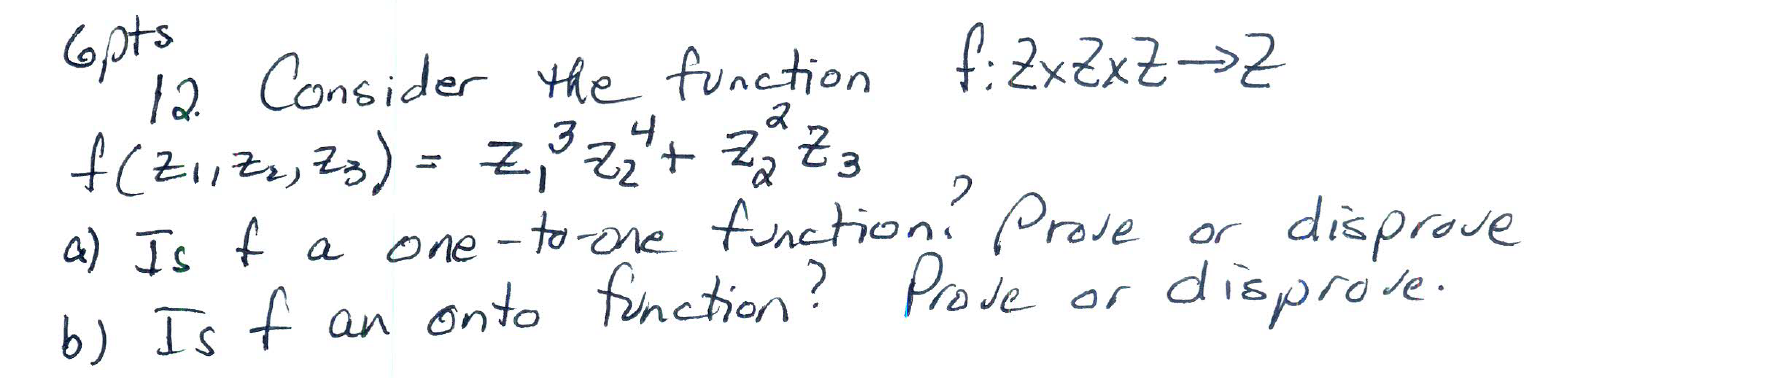 6pts
12. Consider the function f: Z×Z×Z→Z
f(z₁, z₂, z₃) = z₁³ z₂⁴ + z₂² z₃
a) Is f a one-to-one function? Prove or disprove
b) Is f an onto function? Prove or disprove.